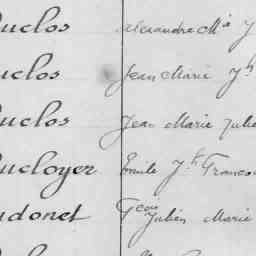 uclos Alexandre M.ⁱᵃ J
uclos Jean Marie J.ʰ
uclos Jean Marie Julie
ucloyer Emile J.ʰ Franco
udonet Fçois Julien Marie